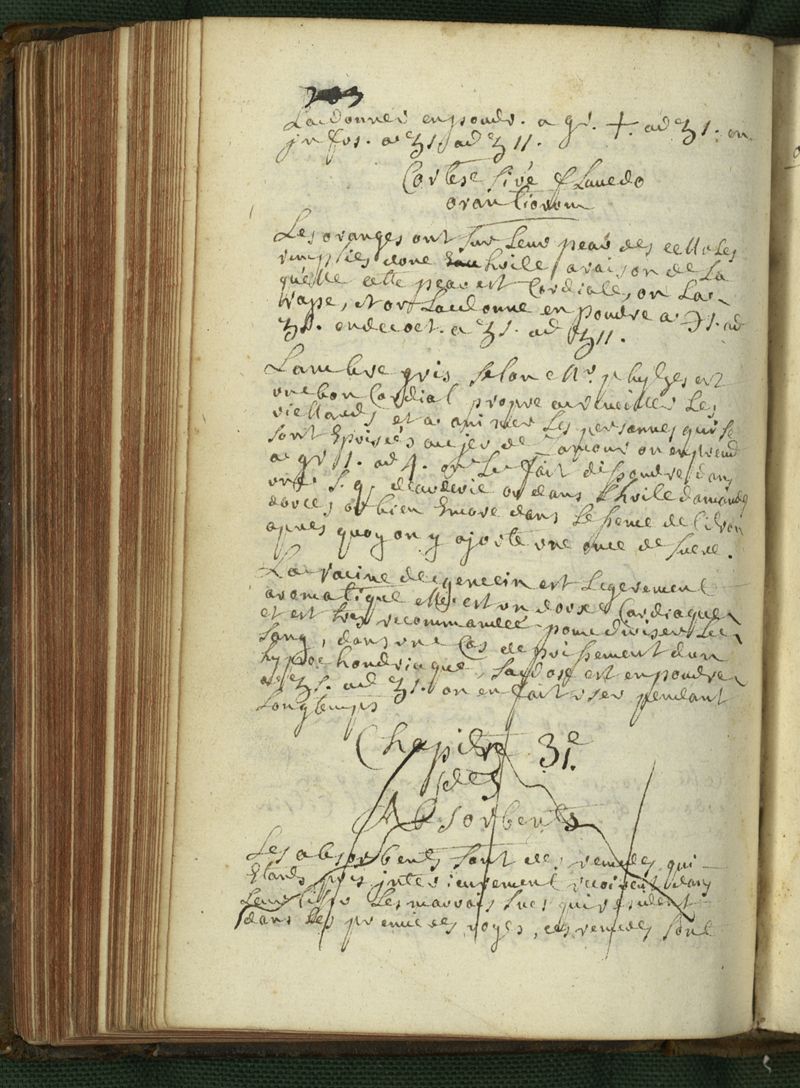 203
La donner en poudr. a gr. X. ad ʒ1. en
infus. a ʒ1. ad ʒ11.
Cortese sive flavedo
orantiorom
Les oranges ont sur leur peau des cellules
remplies done huile a raison de la
quelle cette peau est Cordiale, on la
rape, et on la donne en poudre a ℈1. ad
ʒ1. en decoct. a ʒ1. ad ʒ11.
Lambre gris selon Mr.
une bon Cordial propre a les
viellards et a animer les personnes qui se
sont Epuisés au jeu de l'amour on en prend
a gr 1. ad 4. on le fait dissoudre dans
une s. q. deaudevie ou dans lhuile damandes
douces, ou bien Encore dans le de Citron
apres quoy on y ajoute une once de sucre.
La racine de gencein est legerement
aromatique elle est un doux Cardiaque
et est tres recommandée pour diviser le
sang, dans une Cas depoissement dun
hypochondriaque, la dose est en poudre
a ʒs. ad ʒ1. on en fait user pendant
longtemps
Chapitre 31e.
des
Absorbents
Les absorbents sont des remedes qui
Etants pris interieurement recoivent dans
leur tissu les mauvais sucs qui resident
dans les premieres voyes, ces remedes sont